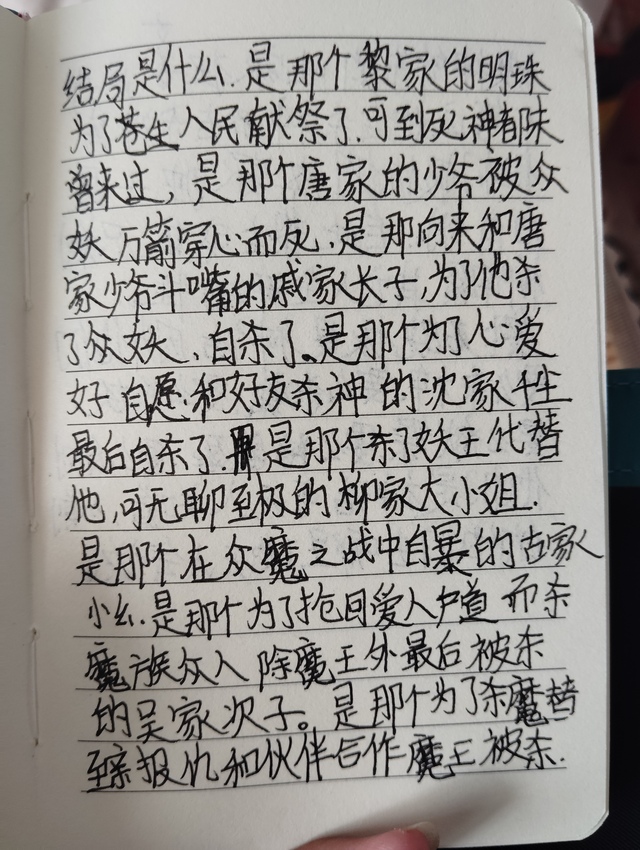 结局是什么.是那个黎家的明珠
为了苍生人民献祭了.可到死神都未
曾来过，是那个唐家的少爷被众
妖万箭穿心而死.是那向来和唐
家少爷斗嘴的戚家长子,为了他杀
了众妖、自杀了。是那个为了心爱
好自愿和好友杀神的沈家千
最后自杀了.是那个杀了妖王代替
他,可无聊至极的柳家大小姐.
是那个在众魔之战中自暴的古家
小幺.是那个为了抢回爱人 而杀
魔族众人除魔王外最后被杀
的吴家次子。是那个为了杀魔替
至亲报仇和伙伴合作魔王被杀.